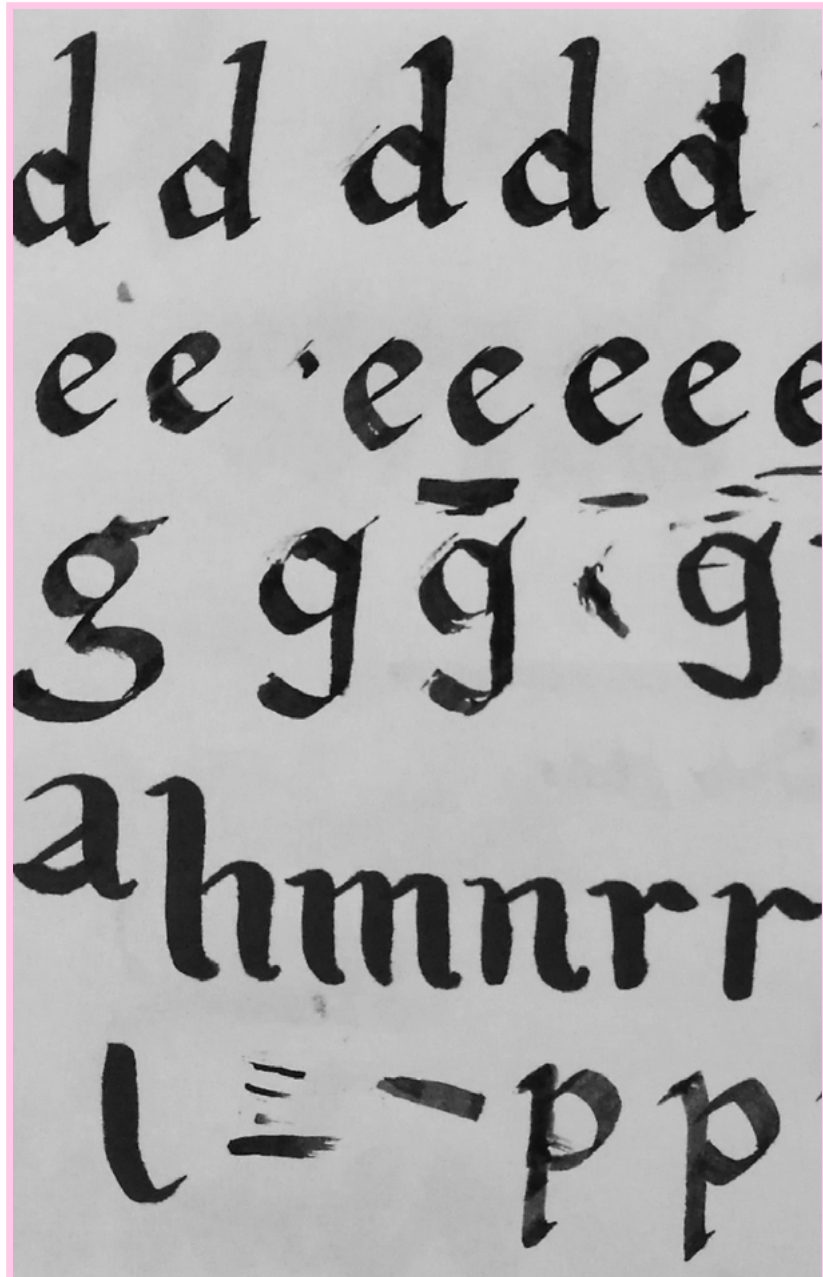 d d d d d
e e e e e e e
g g g g
a h m n r r
l p p